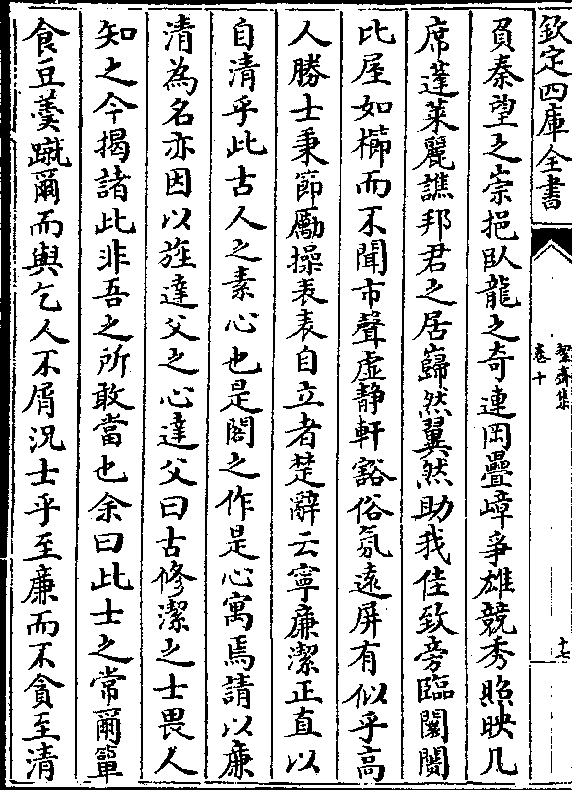 欽定四庫全書
絜齋集
卷十
十七
負秦望之崇挹臥龍之奇連岡疊嶂爭雄競秀照映几
席蓬萊麗譙邦君之居巋然翼然助我佳致旁臨闤闠
比屋如櫛而不聞市聲虛靜軒豁俗氛遠屏有似乎高
人勝士秉節勵操表表自立者楚辭云寧廉潔正直以
自清乎此古人之素心也是閣之作是心寓焉請以廉
清為名亦因以旌達父之心達父曰古修潔之士畏人
知之今揭諸此非吾之所敢當也余曰此士之常爾簞
食豆羹蹴爾而與乞人不屑況士乎至廉而不貪至清